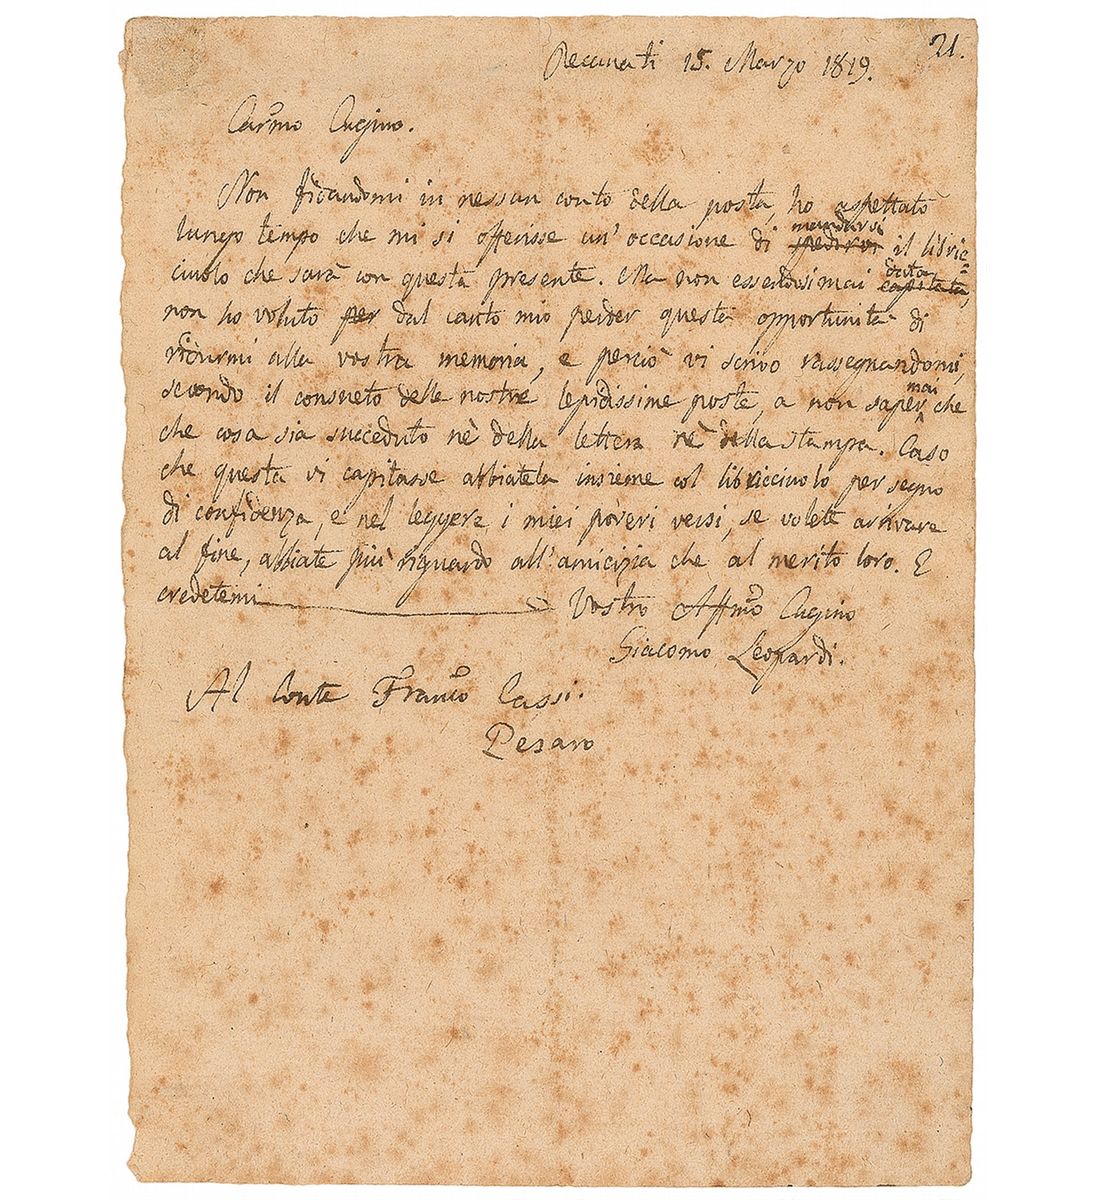 21.
Recanati 15. Marzo 1819.
Carmo Cugino.
Non fidandomi in nessun conto della posta, ho aspettato
lungo tempo che mi si offerisse un'occasione di spedirvi mandarvi il libric=
ciuolo che sarà con questa presente. Ma non essendosi mai capitata data,
non ho voluto per dal canto mio perder questa opportunità di
ridurmi alla vostra memoria, e perciò vi scrivo rassegnandomi,
secondo il consueto delle nostre lepidissime poste, a non saper mai che
che cosa sia succeduto nè della lettera nè della stampa. Caso
che questa vi capitasse abbiatela insieme col libricciuolo per segno
di confidenza, e nel leggere i miei poveri versi, se volete arrivare
al fine, abbiate più riguardo all'amicizia che al merito loro. E
credetemi Vostro Affmo Cugino
Giacomo Leopardi.
Al Conte Franco Cassi.
Pesaro